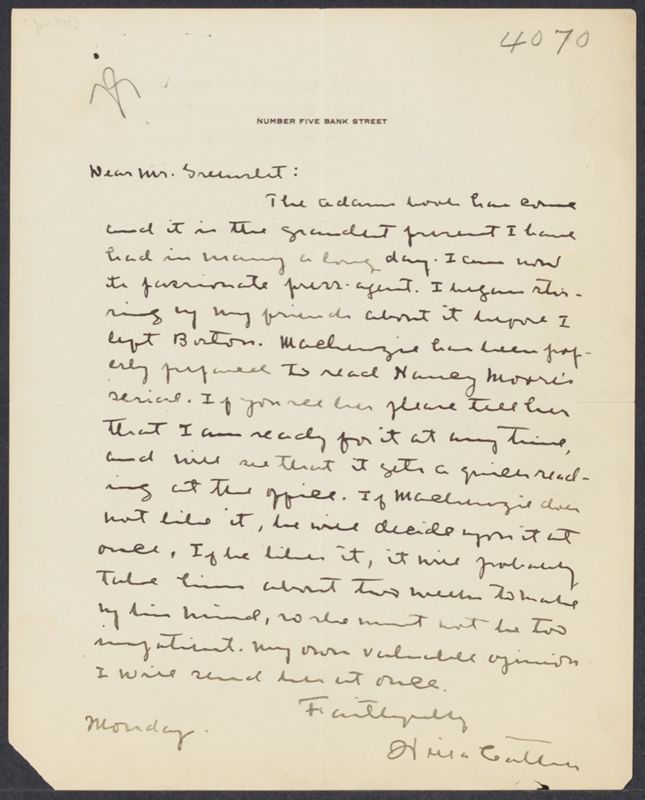 4070
NUMBER FIVE BANK STREET
Dear Mr. Greenslet:
The Adams book has come
and it is the grandest present I have
had in many a long day. I am now
its passionate press-agent. I began stir-
ring up my friends about it before I
left Boston. Mackenzie has been prop-
erly prepared to read Nancy Moore's
serial. If you see her please tell her
that I am ready for it at any time,
and will see that it gets a quick read-
ing at the office. If Mackenzie does
not like it, he will decide upon it at
once. If he likes it, it will probably
take him about two weeks to make
up his mind, so she must not be too
impatient. My own valuable opinion
I will send her at once.
Faithfully
Willa Cather
Monday.